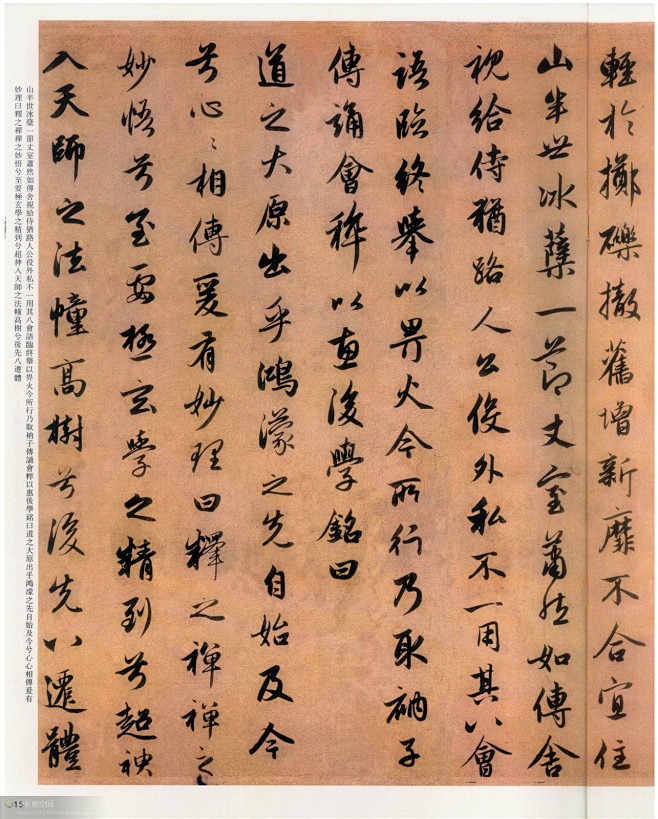 輕於擲礫撤舊增新靡不合宜住
山半世冰蘗一節丈室蕭然如傳舍
視給侍猶路人公役外私不一用其八會
語臨終舉以畀火今所行乃取衲子
傳誦會稡以惠後學銘曰
道之大原出乎鴻濛之先自始及今
兮心〻相傳爰有妙理曰釋之禪禪之
妙悟兮至要極玄學之精到兮超神
入天師之法幢高樹兮後先八遷體
山半世冰蘗一節丈室蕭然如傳舍視給侍猶路人公役外私不一用其八會語臨終舉以畀火今所行乃取衲子傳誦會稡以惠後學銘曰道之大原出乎鴻濛之先自始及今兮心心相傳爰有
妙理曰釋之禪禪之妙悟兮至要極玄學之精到兮超神入天師之法幢高樹兮後先八遷體
15